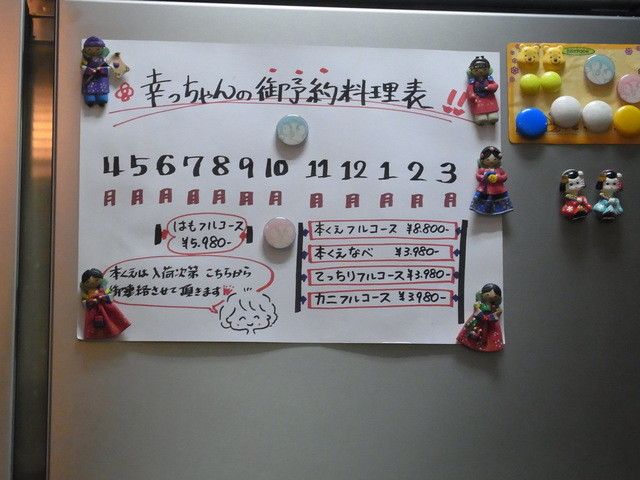 幸っちゃんの御予約料理表!!
4 5 6 7 8 9 10 11 12 1 2 3
月 月 月 月 月 月 月 月 月 月 月 月
はもフルコース
¥5.980-
本くえフルコース ¥8.800-
本くえなべ ¥3.980-
てっちりフルコース ¥3.980-
カニフルコース ¥3980-
本くえは入荷次第 こちらから
御連絡させて頂きます